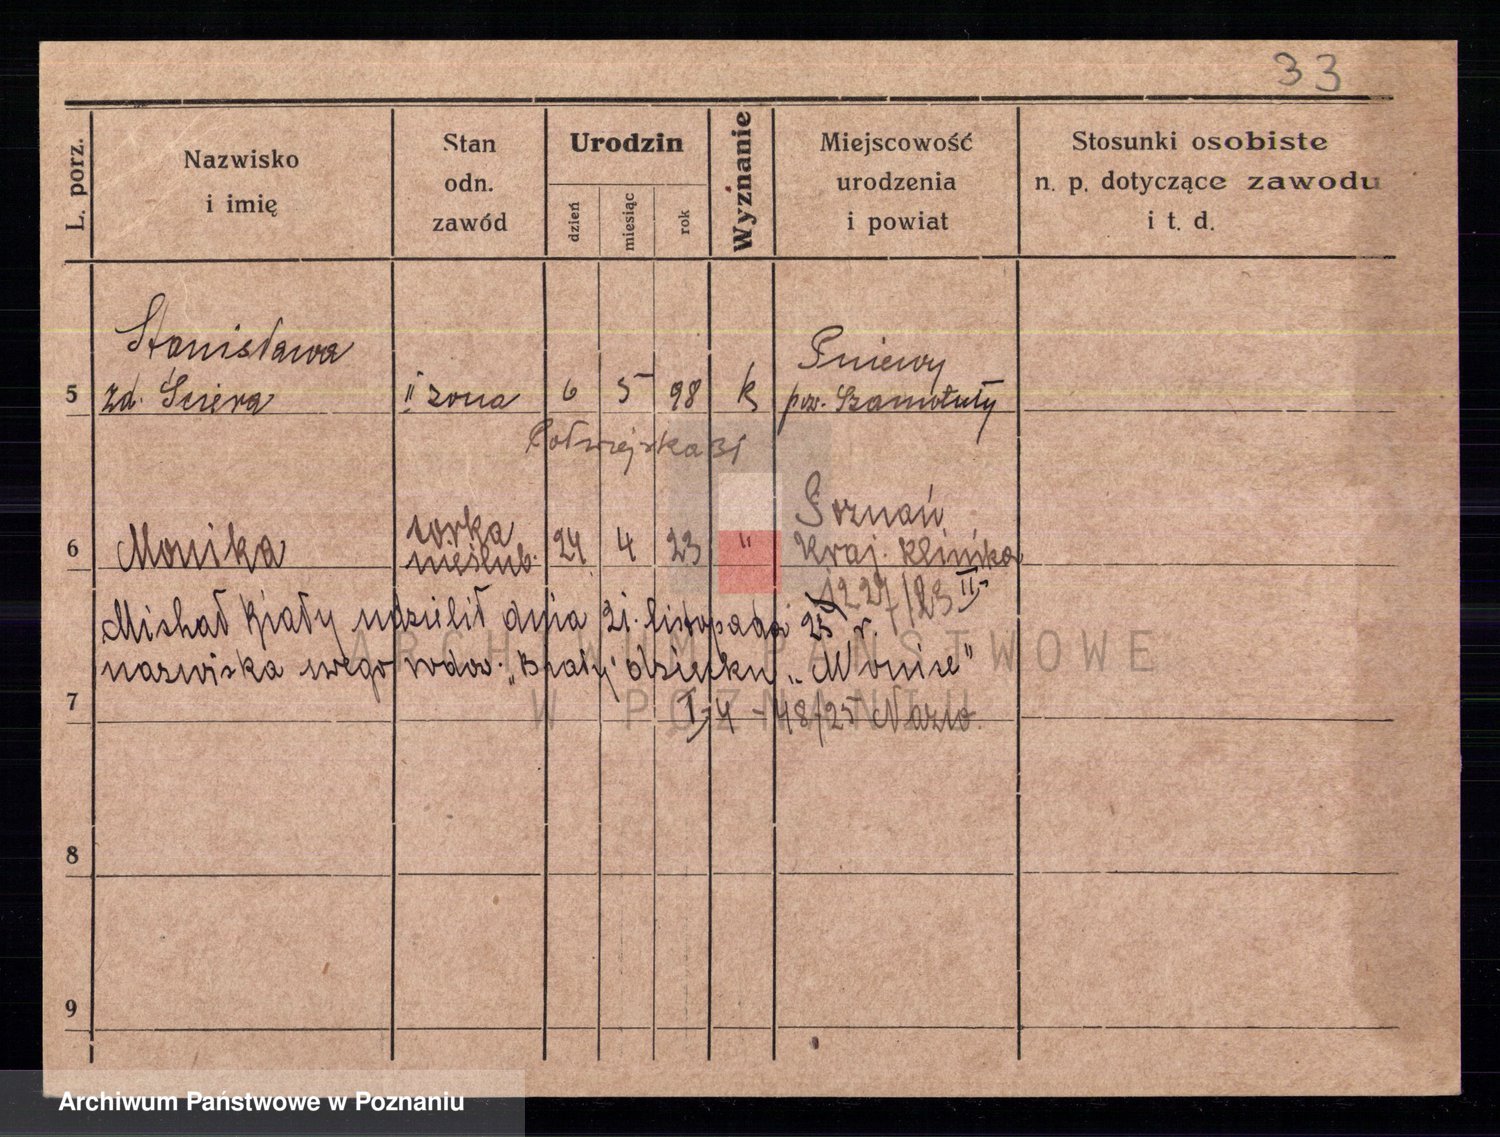 33
L. porz.
Nazwisko
i imię
Stan
odn.
zawód
Urodzin
dzień
miesiąc
rok
Wyznanie
Miejscowość
urodzenia
i powiat
Stosunki osobiste
n. p. dotyczące zawodu
i t. d.
Stanisława Pniewy
5 zd. II żona 6 5 98 k pow. Szamotuły
Półwiejska 31
córka Poznań
6 Monika nieślub. 24 4 23 " Kraj. Klinika
1227/23 II
Michał Biały udzielił dnia 21. listopada 25 r.
nazwiska swego rodow. „Biały" dziecku „Monice"
7 I-4-48/25 Nazw.
8
9
ARCHIWUM PAŃSTWOWE
W POZNANIU
Archiwum Państwowe w Poznaniu